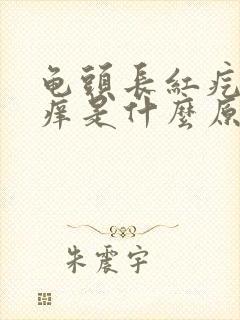 龟頭長紅疙
痒是什麼原
朱震宇